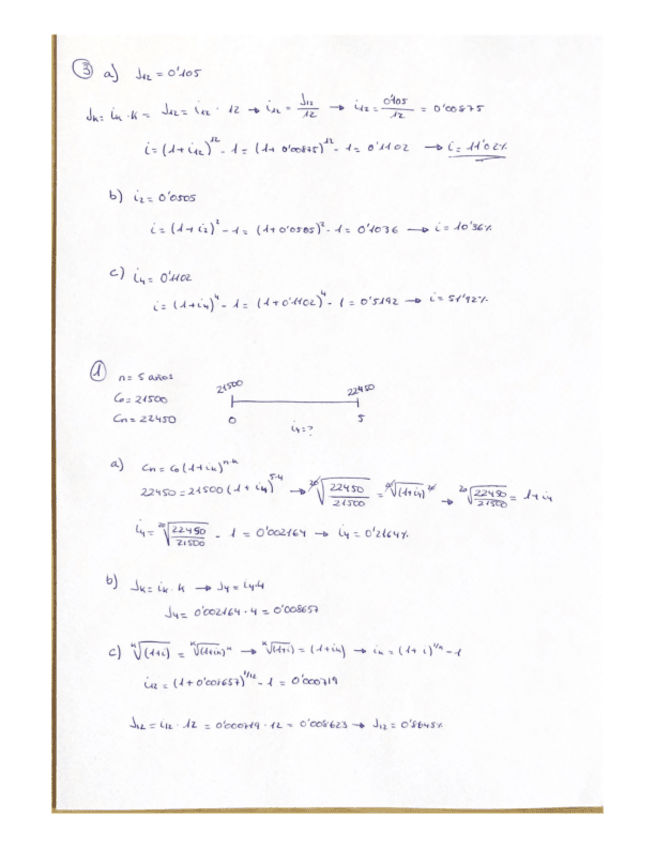 ③ a) J₁₂ = 0'105
Jₖ = iₖ · k = J₁₂ = i₁₂ · 12 → i₁₂ = J₁₂/12 → i₁₂ = 0'105/12 = 0'00875
i = (1 + i₁₂)¹² - 1 = (1 + 0'00875)¹² - 1 = 0'1102 → i = 11'02%
b) i₂ = 0'0505
i = (1 + i₂)² - 1 = (1 + 0'0505)² - 1 = 0'1036 → i = 10'36%
c) i₄ = 0'1102
i = (1 + i₄)⁴ - 1 = (1 + 0'1102)⁴ - 1 = 0'5192 → i = 51'92%
① n = 5 años
C₀ = 21500
Cn = 22450
21500 22450
0 i₄ = ? 5
a) Cn = C₀ (1 + iₖ)ⁿ·ᵏ
22450 = 21500 (1 + i₄)⁵·⁴ → ²⁰√(22450/21500) = ²⁰√(1 + i₄)²⁰ → ²⁰√(22450/21500) = 1 + i₄
i₄ = ²⁰√(22450/21500) - 1 = 0'002164 → i₄ = 0'2164%
b) Jₖ = iₖ · k → J₄ = i₄ · 4
J₄ = 0'002164 · 4 = 0'008657
c) ᵏ√(1 + i) = ᵏ√(1 + iₖ)ᵏ → ᵏ√(1 + i) = (1 + iₖ) → iₖ = (1 + i)^(1/k) - 1
i₁₂ = (1 + 0'008657)^(1/12) - 1 = 0'000719
J₁₂ = i₁₂ · 12 = 0'000719 · 12 = 0'008623 → J₁₂ = 0'8645%